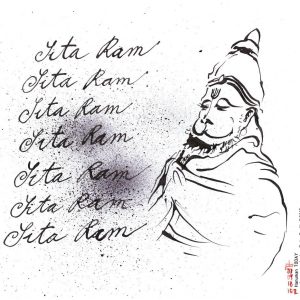 Sita Ram
Sita Ram
Sita Ram
Sita Ram
Sita Ram
Sita Ram
Sita Ram
Hanuman TODAY